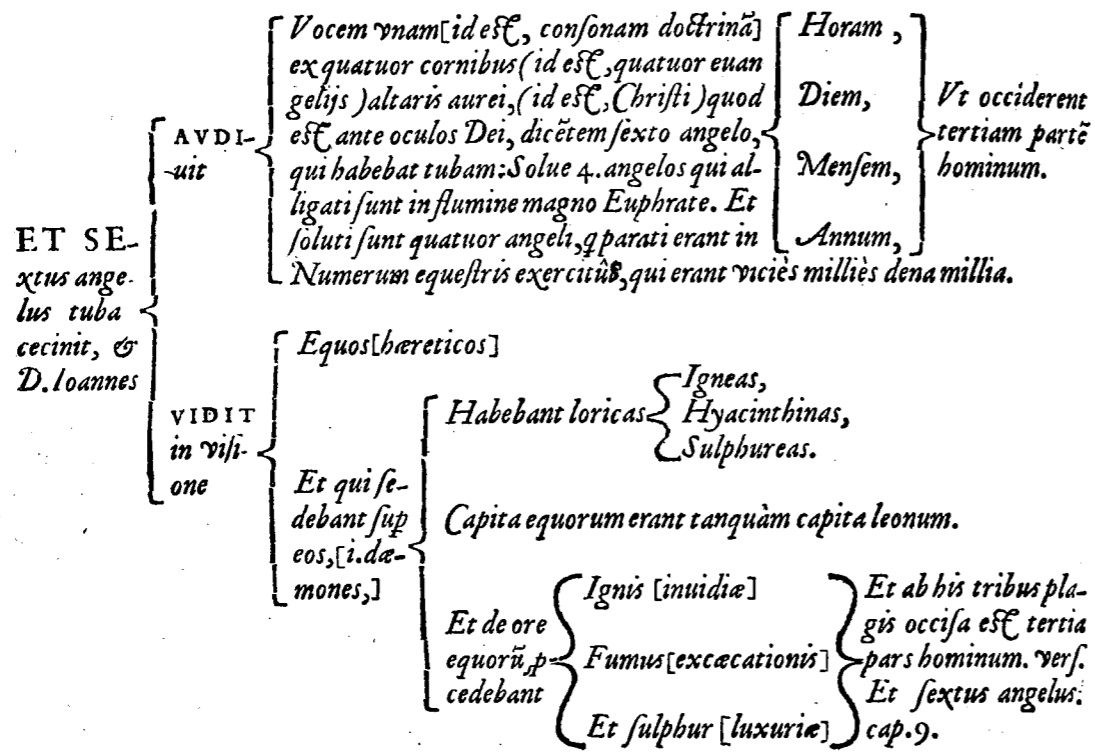 ET SE-
xtus ange-
lus tuba
cecinit, &
D. Ioannes
AVDI-
uit
Vocem vnam[id est, conſonam doctrinã]
ex quatuor cornibus (id est, quatuor euan
gelijs) altaris aurei, (id est, Chriſti) quod
est ante oculos Dei, dicẽtem ſexto angelo,
qui habebat tubam: Solue 4. angelos qui al-
ligati ſunt in flumine magno Euphrate. Et
ſoluti ſunt quatuor angeli, ꝗ parati erant in
Horam,
Diem,
Menſem,
Annum,
Vt occiderent
tertiam partẽ
hominum.
Numerum equeſtris exercitûs, qui erant viciès milliès dena millia.
VIDIT
in viſi-
one
Equos[hæreticos]
Et qui ſe-
debant ſuꝑ
eos,[i. dæ-
mones,]
Habebant loricas
Igneas,
Hyacinthinas,
Sulphureas.
Capita equorum erant tanquàm capita leonum.
Et de ore
equorũ, ꝓ
cedebant
Ignis [inuidiæ]
Fumus[excæcationis]
Et ſulphur [luxuriæ]
Et ab his tribus pla-
gis occiſa est tertia
pars hominum. verſ.
Et ſextus angelus.
cap. 9.